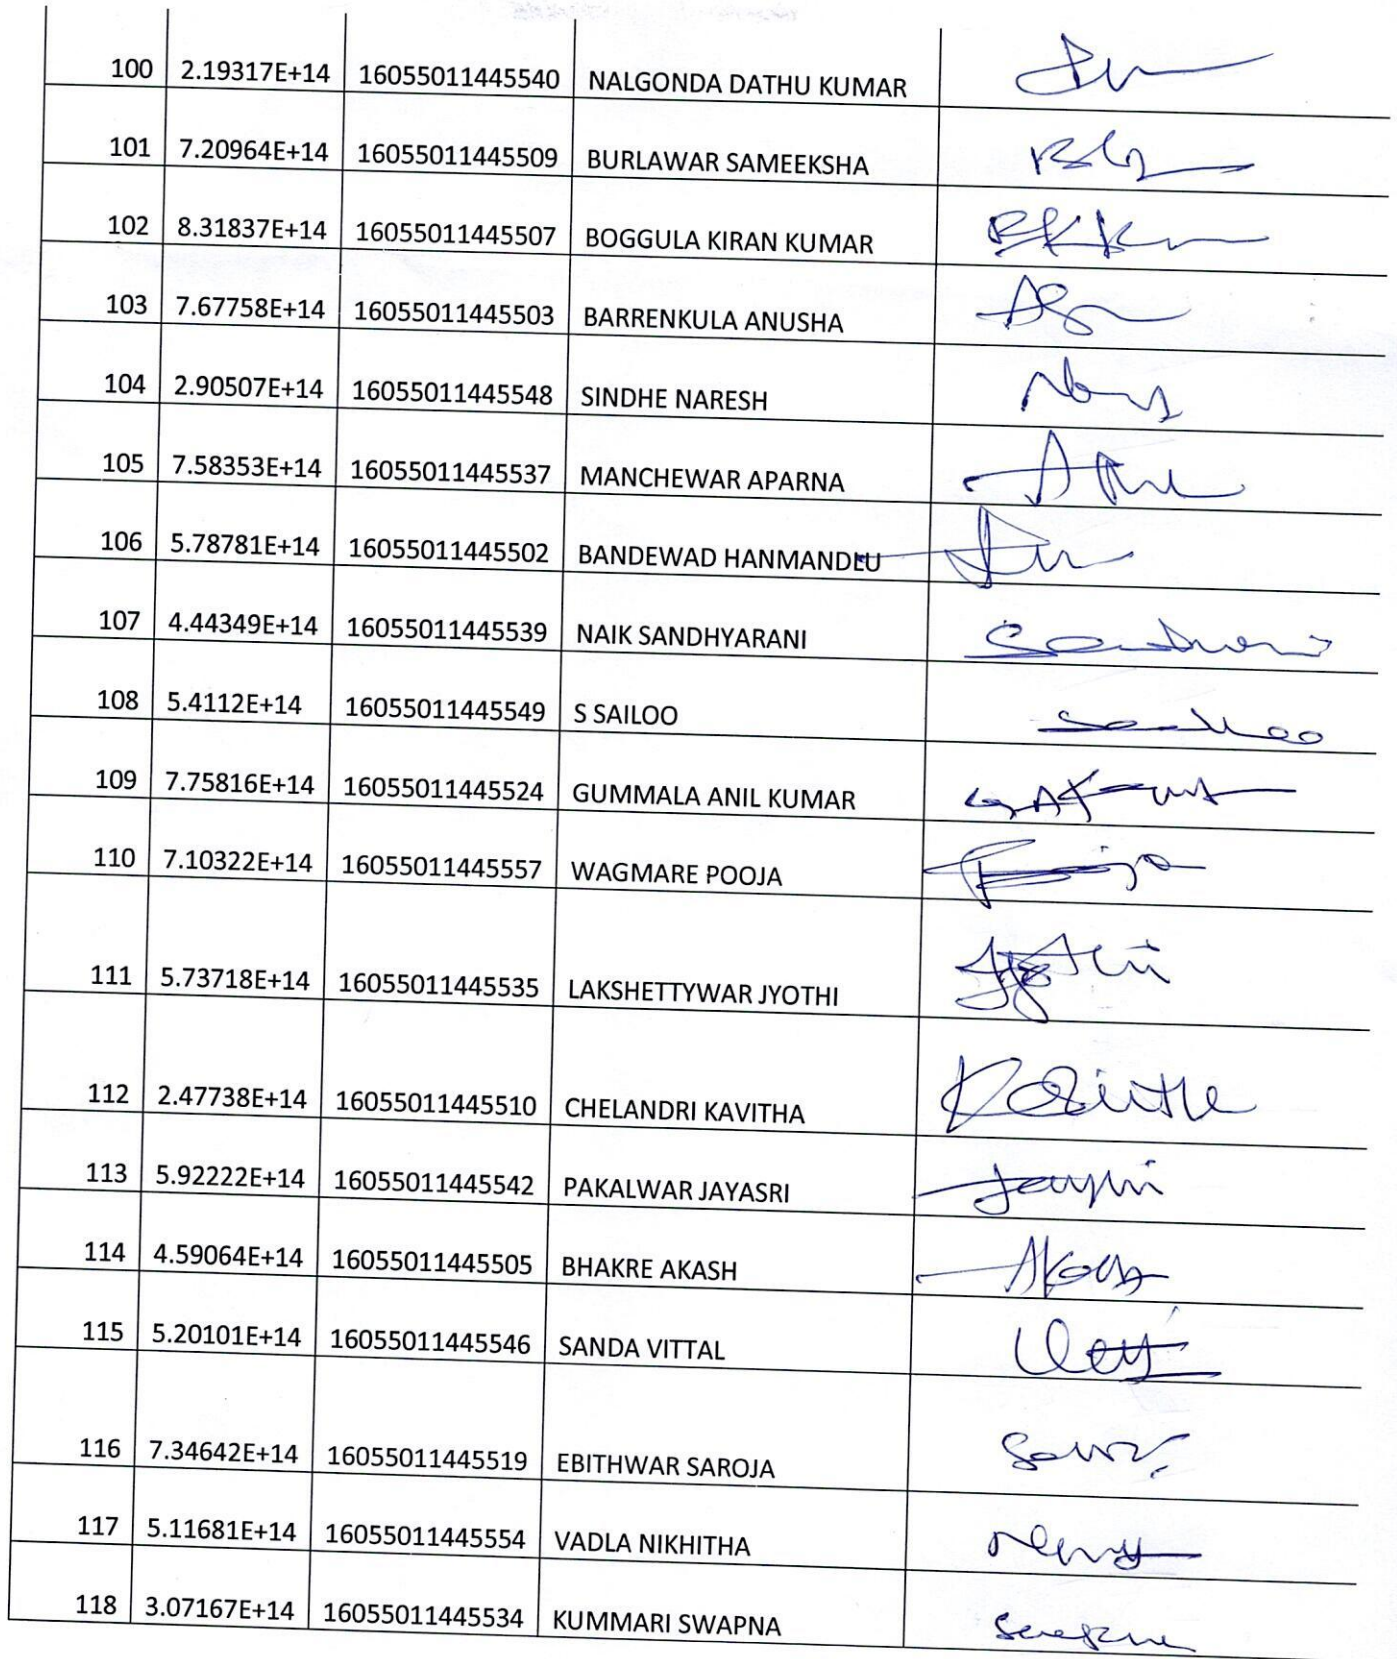 100 2.19317E+14 16055011445540 NALGONDA DATHU KUMAR
101 7.20964E+14 16055011445509 BURLAWAR SAMEEKSHA
102 8.31837E+14 16055011445507 BOGGULA KIRAN KUMAR
103 7.67758E+14 16055011445503 BARRENKULA ANUSHA
104 2.90507E+14 16055011445548 SINDHE NARESH
105 7.58353E+14 16055011445537 MANCHEWAR APARNA
106 5.78781E+14 16055011445502 BANDEWAD HANMANDLU
107 4.44349E+14 16055011445539 NAIK SANDHYARANI
108 5.4112E+14 16055011445549 S SAILOO
109 7.75816E+14 16055011445524 GUMMALA ANIL KUMAR
110 7.10322E+14 16055011445557 WAGMARE POOJA
111 5.73718E+14 16055011445535 LAKSHETTYWAR JYOTHI
112 2.47738E+14 16055011445510 CHELANDRI KAVITHA
113 5.92222E+14 16055011445542 PAKALWAR JAYASRI
114 4.59064E+14 16055011445505 BHAKRE AKASH
115 5.20101E+14 16055011445546 SANDA VITTAL
116 7.34642E+14 16055011445519 EBITHWAR SAROJA
117 5.11681E+14 16055011445554 VADLA NIKHITHA
118 3.07167E+14 16055011445534 KUMMARI SWAPNA